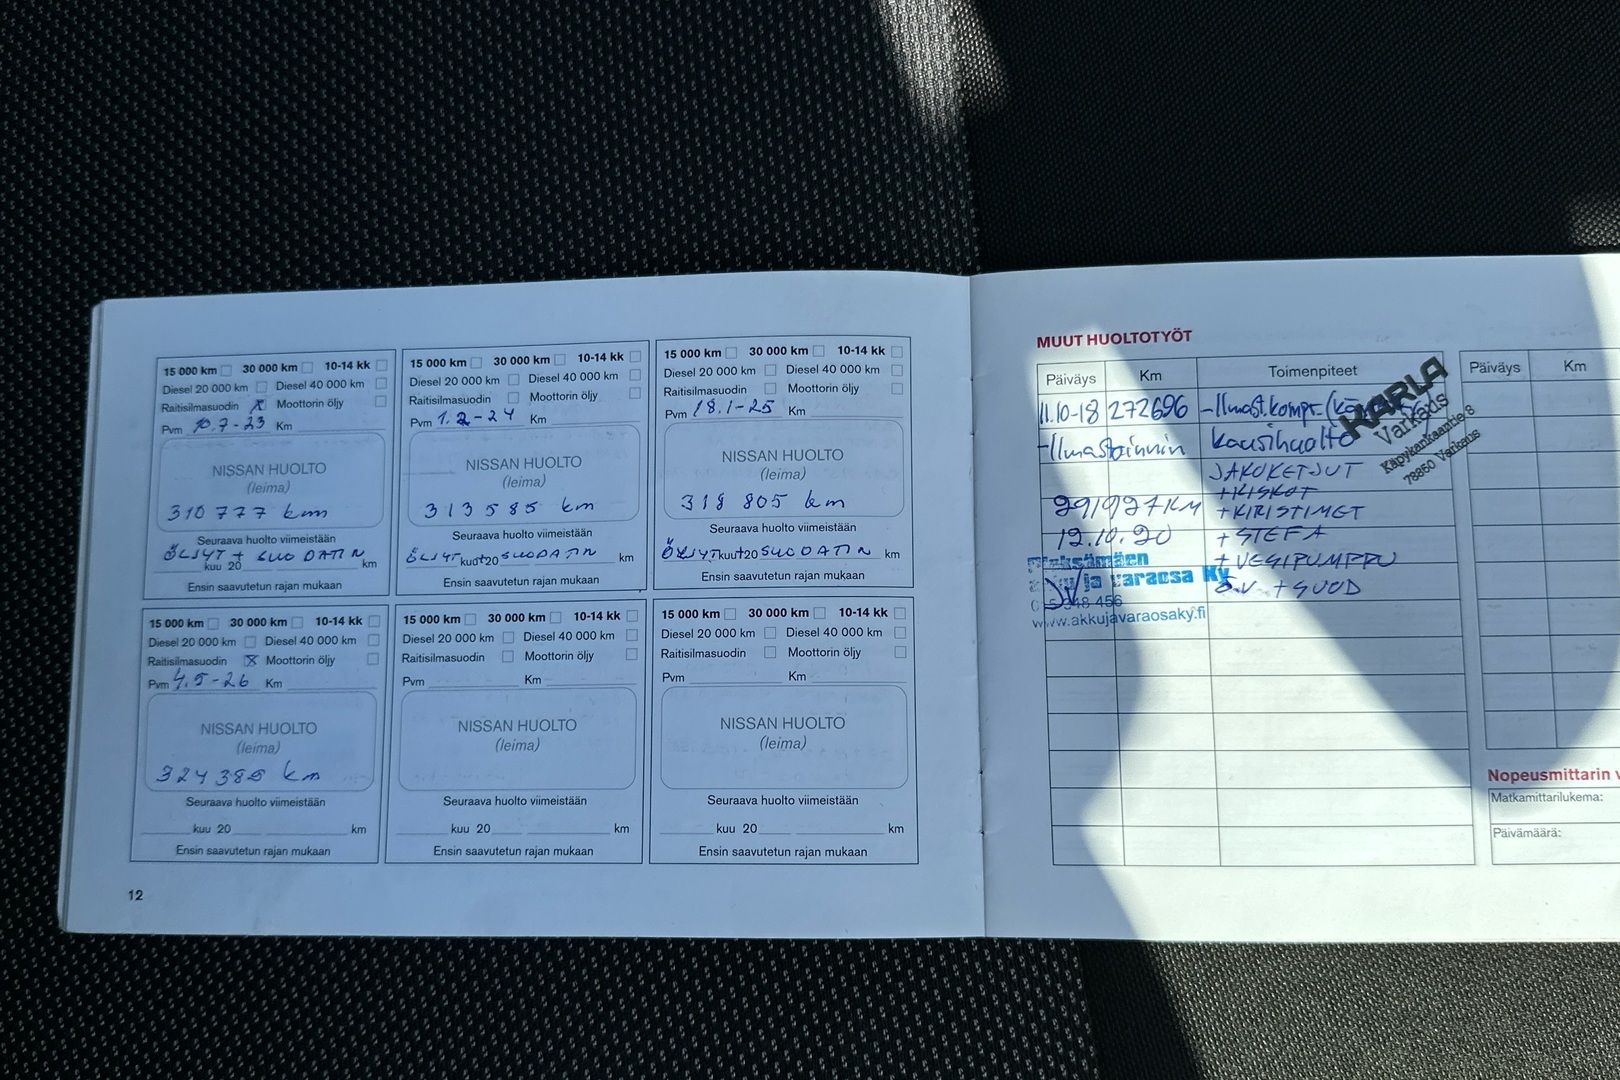 15 000 km 30 000 km 10-14 kk
Diesel 20 000 km Diesel 40 000 km
Raitisilmasuodin X Moottorin öljy
Pvm 10.7-23 Km
NISSAN HUOLTO
(leima)
310 777 km
Seuraava huolto viimeistään
ÖLJYT + SUODATIN
kuu 20 km
Ensin saavutetun rajan mukaan
15 000 km 30 000 km 10-14 kk
Diesel 20 000 km Diesel 40 000 km
Raitisilmasuodin Moottorin öljy
Pvm 1.2-24 Km
NISSAN HUOLTO
(leima)
313 585 km
Seuraava huolto viimeistään
ÖLJYT + SUODATIN
kuu 20 km
Ensin saavutetun rajan mukaan
15 000 km 30 000 km 10-14 kk
Diesel 20 000 km Diesel 40 000 km
Raitisilmasuodin Moottorin öljy
Pvm 18.1-25 Km
NISSAN HUOLTO
(leima)
318 805 km
Seuraava huolto viimeistään
ÖLJYT + SUODATIN
kuu 20 km
Ensin saavutetun rajan mukaan
15 000 km 30 000 km 10-14 kk
Diesel 20 000 km Diesel 40 000 km
Raitisilmasuodin X Moottorin öljy
Pvm 4.5-26 Km
NISSAN HUOLTO
(leima)
324 385 km
Seuraava huolto viimeistään
kuu 20 km
Ensin saavutetun rajan mukaan
15 000 km 30 000 km 10-14 kk
Diesel 20 000 km Diesel 40 000 km
Raitisilmasuodin Moottorin öljy
Pvm Km
NISSAN HUOLTO
(leima)
Seuraava huolto viimeistään
kuu 20 km
Ensin saavutetun rajan mukaan
15 000 km 30 000 km 10-14 kk
Diesel 20 000 km Diesel 40 000 km
Raitisilmasuodin Moottorin öljy
Pvm Km
NISSAN HUOLTO
(leima)
Seuraava huolto viimeistään
kuu 20 km
Ensin saavutetun rajan mukaan
12
MUUT HUOLTOTYÖT
Päiväys Km Toimenpiteet
11.10-18 272696 -Ilmast.kompr.
-Ilmastoinnin kausihuolto
KARLA
Varkaus
Käpykankaantie 8
78850 Varkaus
JAKOKETJUT
+KISKOT
291927KM +KIRISTIMET
12.10.20 +STEFA
+VESIPUMPPU
Ö.V +SUOD
Pieksämäen
ja varaosa Ky
www.akkujavaraosaky.fi
Päiväys Km
Nopeusmittarin
Matkamittarilukema:
Päivämäärä: